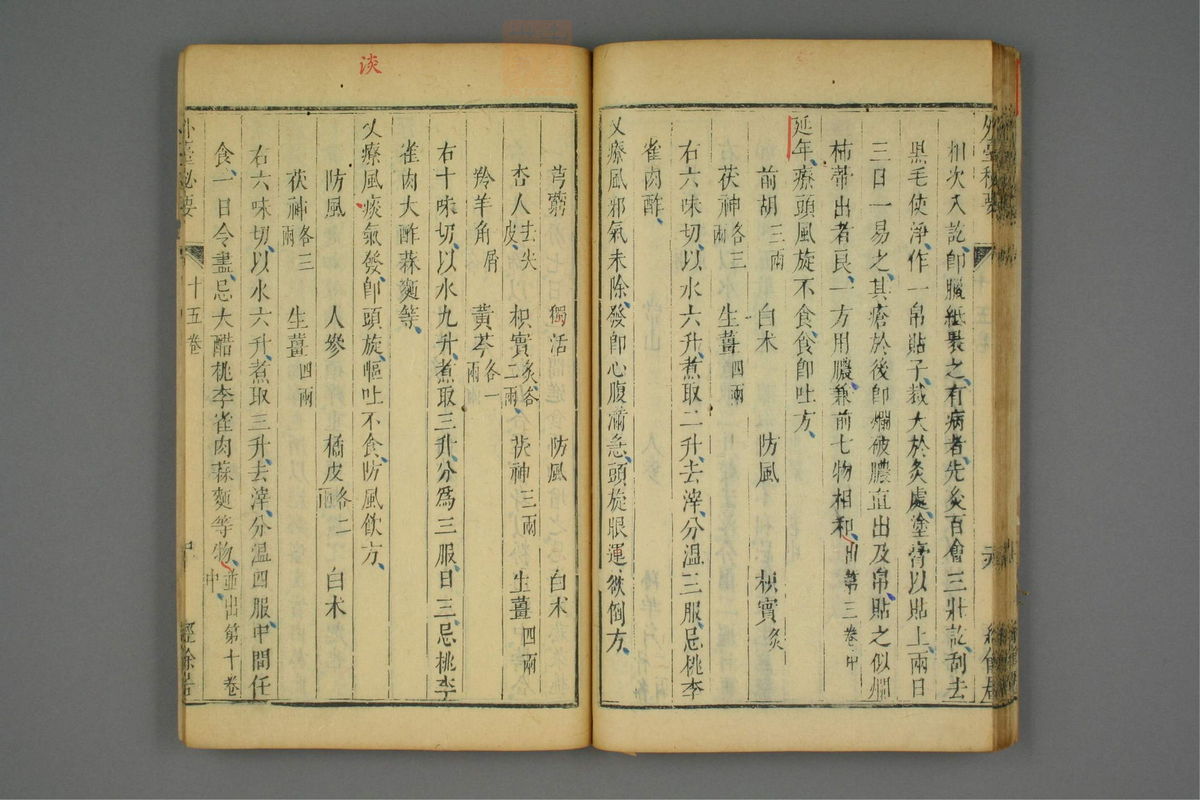 外臺秘要
相次入訖、卽臘紙裹之、有病者、先灸百會三壯訖、刮去
黑毛使淨、作一帛貼子、裁大於灸處、塗膏以貼上、兩日
三日一易之、其瘡於後卽爛破膿血出及帛貼之似爛
柿蔕出者良、一方用膿、兼前七物相和、出第三卷中
延年、療頭風旋不食、食卽吐方、
前胡三兩 白术 防風 枳實炙
茯神各三兩 生薑四兩
右六味切、以水六升、煮取二升、去滓、分温三服、忌桃李
雀肉酢、
又療風邪氣未除、發卽心腹滿急、頭旋眼運、欲倒方、
芎藭 獨活 防風 白术
杏人去尖皮、 枳實炙、各二兩 茯神三兩 生薑四兩
羚羊角屑 黃芩各一兩
右十味切、以水九升、煮取三升、分爲三服、日三、忌桃李
雀肉大酢蒜麵等、
又療風痰氣發、卽頭旋、嘔吐不食、防風飲方、
防風 人參 橘皮各二兩 白术
茯神各三兩 生薑四兩
右六味切、以水六升、煮取三升、去滓、分温四服、中間任
食、一日令盡、忌大酷桃李雀肉蒜麵等物、並出第十卷中、
外臺秘要
十五卷
經餘居
淡